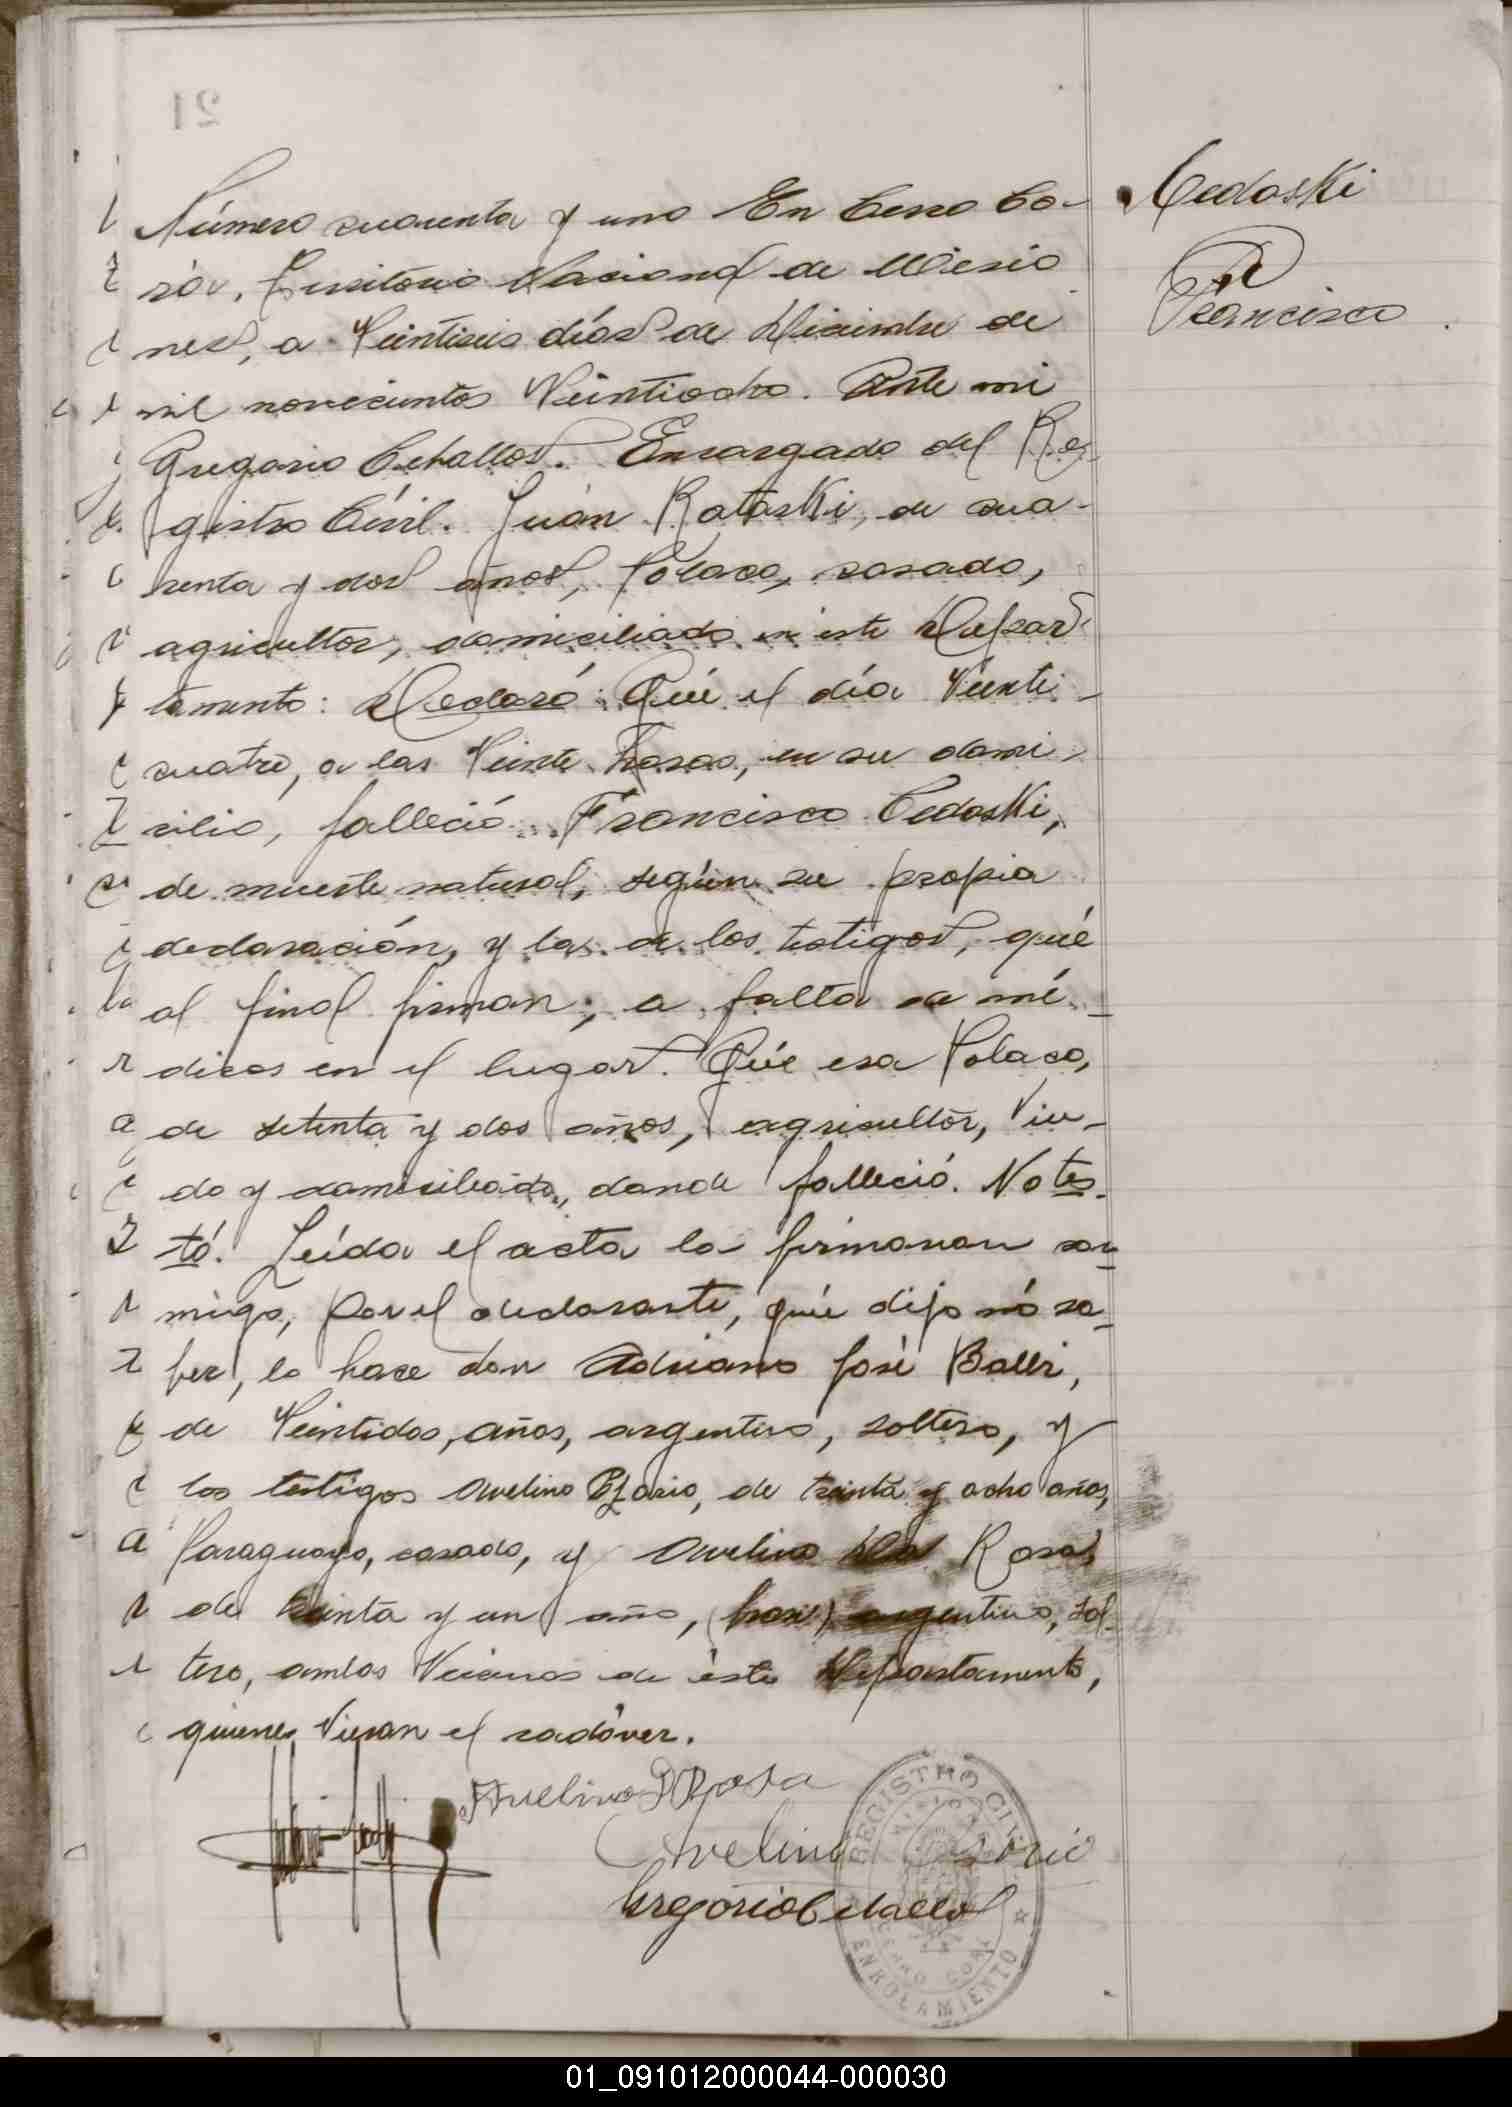 21
Número cuarenta y uno En Cerro Co-
rá, Territorio Nacional de Misio
nes, a Veintiseis días de Diciembre de
mil novecientos Veintiocho. Ante mi
Gregorio Ceballos. Encargado del Re-
gistro Civil. Juán Rataski, de cua-
renta y dos años, Polaco, casado,
agricultor, domiciliado en este Depar-
tamento: Declaró: Qué el día Veinti-
cuatro, a las Veinte horas, en su domi-
cilio, falleció Francisco Cedaski,
de muerte natural, según su propia
declaración, y las de los testigos, qué
al final firman; a falta de mé-
dicos en el lugar. Qúe era Polaco,
de setenta y dos años, agricultor, Viu-
do y domiciliado, donde falleció. No tes-
tó. Leída el acta la firmaran con
migo, por el declarante, qúe dijo nó sa-
ber, lo hace don Adriano José Balli,
de Veintidos, años, argentino, soltero, y
los testigos Avelino Osorio, de treinta y ocho años,
Paraguayo, casado, y Avelino Da Rosa,
de treinta y un año, argentino, sol-
tero, ambos Vecinos de éste Departamento,
quienes Vieran el cadáver.
Avelino D Rosa
Avelino Osorio
Gregorio Ceballos
REGISTRO CIVIL
MISIONES
CERRO CORÁ
ENROLAMIENTO
Cedaski
Francisco
01_091012000044-000030